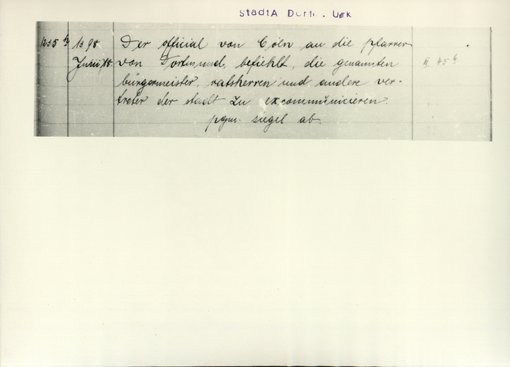 StadtA Dortm. Urk
1398 Der official von Cöln an die pfarrer
Juni 18 von Dortmund, befiehlt, die genannten
bürgermeister, ratsherren und andere ver-
treter der stadt zu excommunicieren.
pgm. siegel ab.